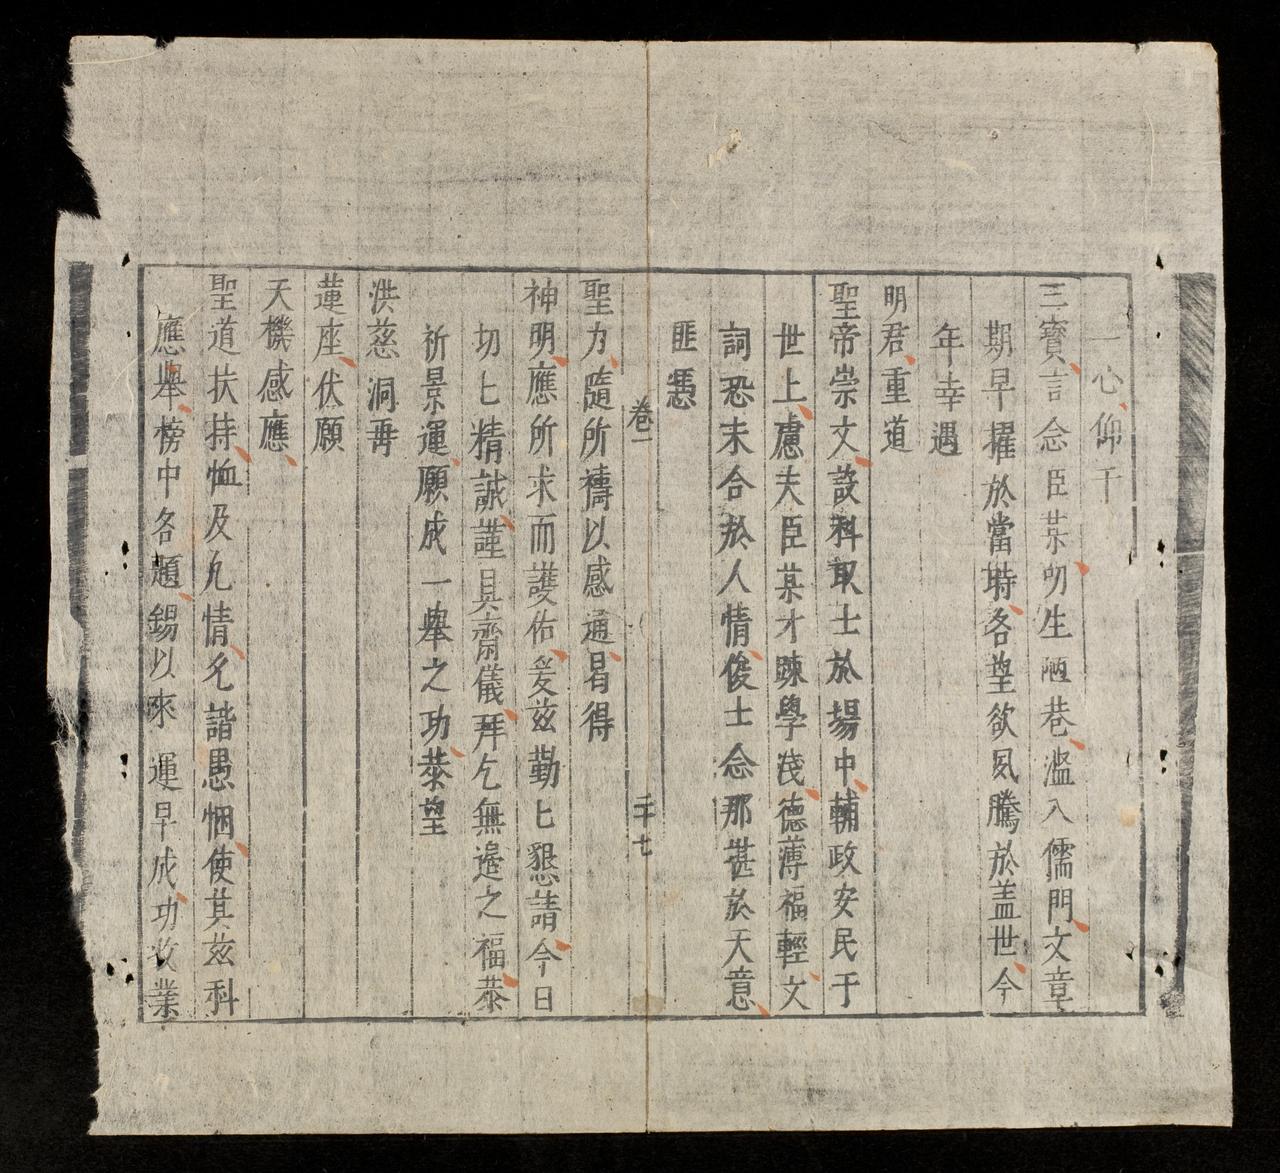 一心仰干
三寶言念臣某叨生陋巷濫入儒門文章
期早擢於當時各望欲夙騰於盖世今
年幸遇
明君重道
聖帝崇文設科取士於場中輔政安民于
世上慮夫臣某才踈學淺德薄福輕文
詞恐未合於人情俊士念那甚於天意
匪憑
卷一 二十七
聖力隨所禱以感通曷得
神明應所求而護佑爰茲勤匕懇請今日
切匕精誠謹具齋儀拜乞無邉之福恭
祈景運願成一舉之功恭望
洪慈洞再
蓮座伏願
天機感應
聖道扶持恤及凢情允諧愚悃使其兹科
應舉榜中各題錫以來運早成功收業